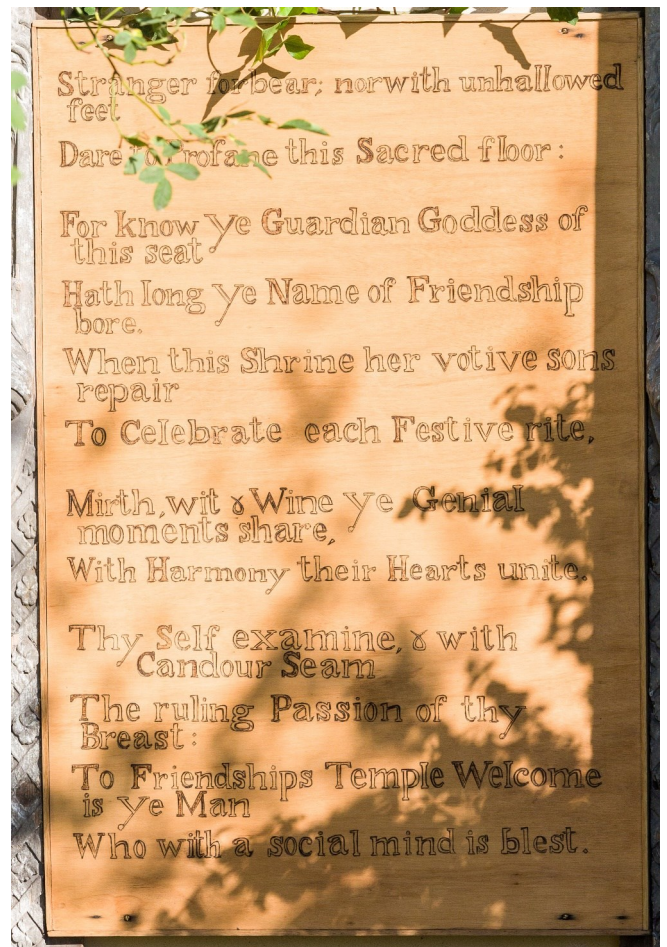 Stranger forbear; nor with unhallowed
feet
Dare to Profane this Sacred floor:
For know ye Guardian Goddess of
this seat
Hath long ye Name of Friendship
bore.
When this Shrine her votive sons
repair
To Celebrate each Festive rite,
Mirth, wit & Wine ye Genial
moments share,
With Harmony their Hearts unite.
Thy Self examine, & with
Candour Seam
The ruling Passion of thy
Breast:
To Friendships Temple Welcome
is ye Man
Who with a social mind is blest.